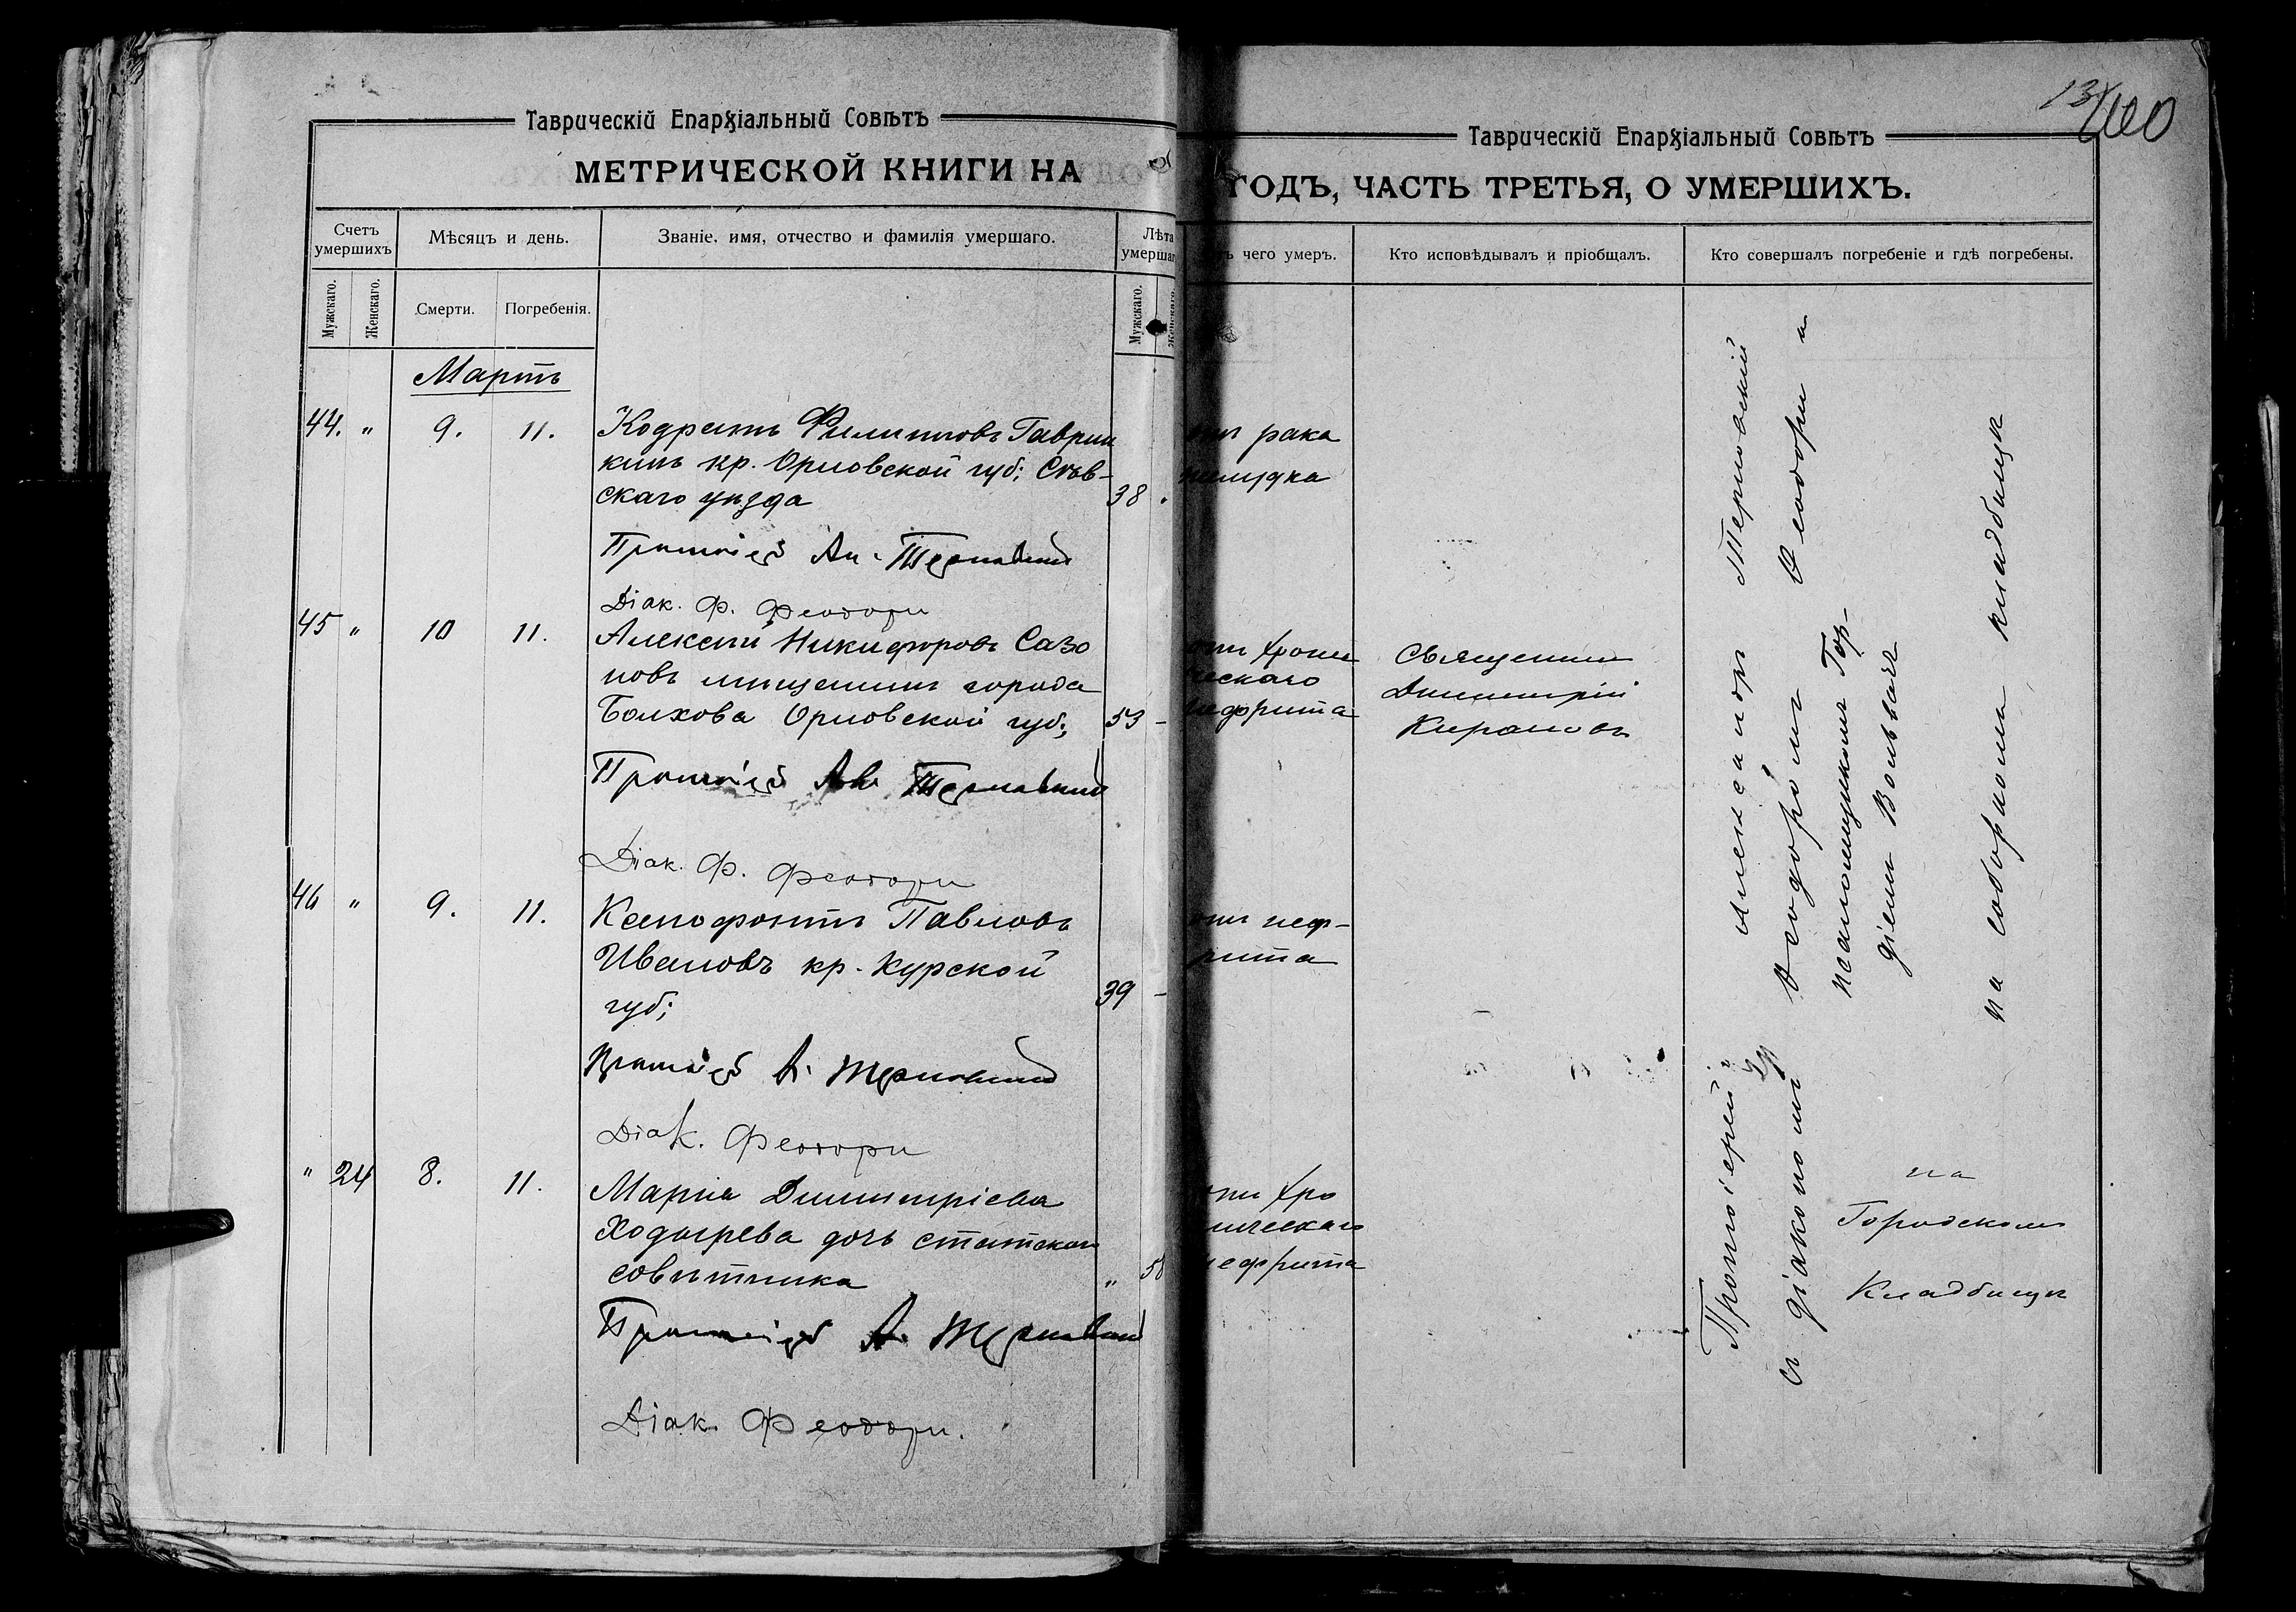 13/100
Таврическій Епархіальный Совѣтъ
МЕТРИЧЕСКОЙ КНИГИ НА
Счетъ умершихъ
Мѣсяцъ и день.
Званіе, имя, отчество и фамилія умершаго.
Лѣта умершаг
Мужскаго.
Женскаго.
Смерти.
Погребенія.
Мужскаго.
Женскаго.
Мартъ
44. " 9. 11. Кодратъ Филипповъ Гаврик
кинъ кр. Орловской губ; Сѣв-
скаго уѣзда 38
Протоіер Ал. Терновскій
Діак. Ф. Феодори
45 " 10 11. Алексѣй Никифоровъ Сазо
новъ мѣщанинъ города
Болхова Орловской губ; 53 -
Протоіер Ал. Терновскій
Діак. Ф. Феодори
46 " 9. 11. Ксенофонтъ Павловъ
Ивановъ кр. Курской
губ; 39 -
Протоіер А. Терновскій
Діак. Феодори
" 24 8. 11. Марія Димитріева
Ходырева дочь статскаго
совѣтника "
Протоіер А. Терновскій
Діак. Феодори.
Таврическій Епархіальный Совѣтъ
ГОДЪ, ЧАСТЬ ТРЕТЬЯ, О УМЕРШИХЪ.
ъ чего умеръ.
Кто исповѣдывалъ и пріобщалъ.
Кто совершалъ погребеніе и гдѣ погребены.
отъ рака
желудка
отъ хрони
ческаго
нефрита
Священникъ
Димитрій
Кирановъ
отъ неф-
рита
отъ хро
ническаго
нефрита
Протоіерей Александръ Терновскій
съ діакономъ Ѳеодоромъ Ѳеодори и
псаломщикомъ Гор-
діемъ
на соборномъ кладбищѣ
на
Городскомъ
Кладбищѣ